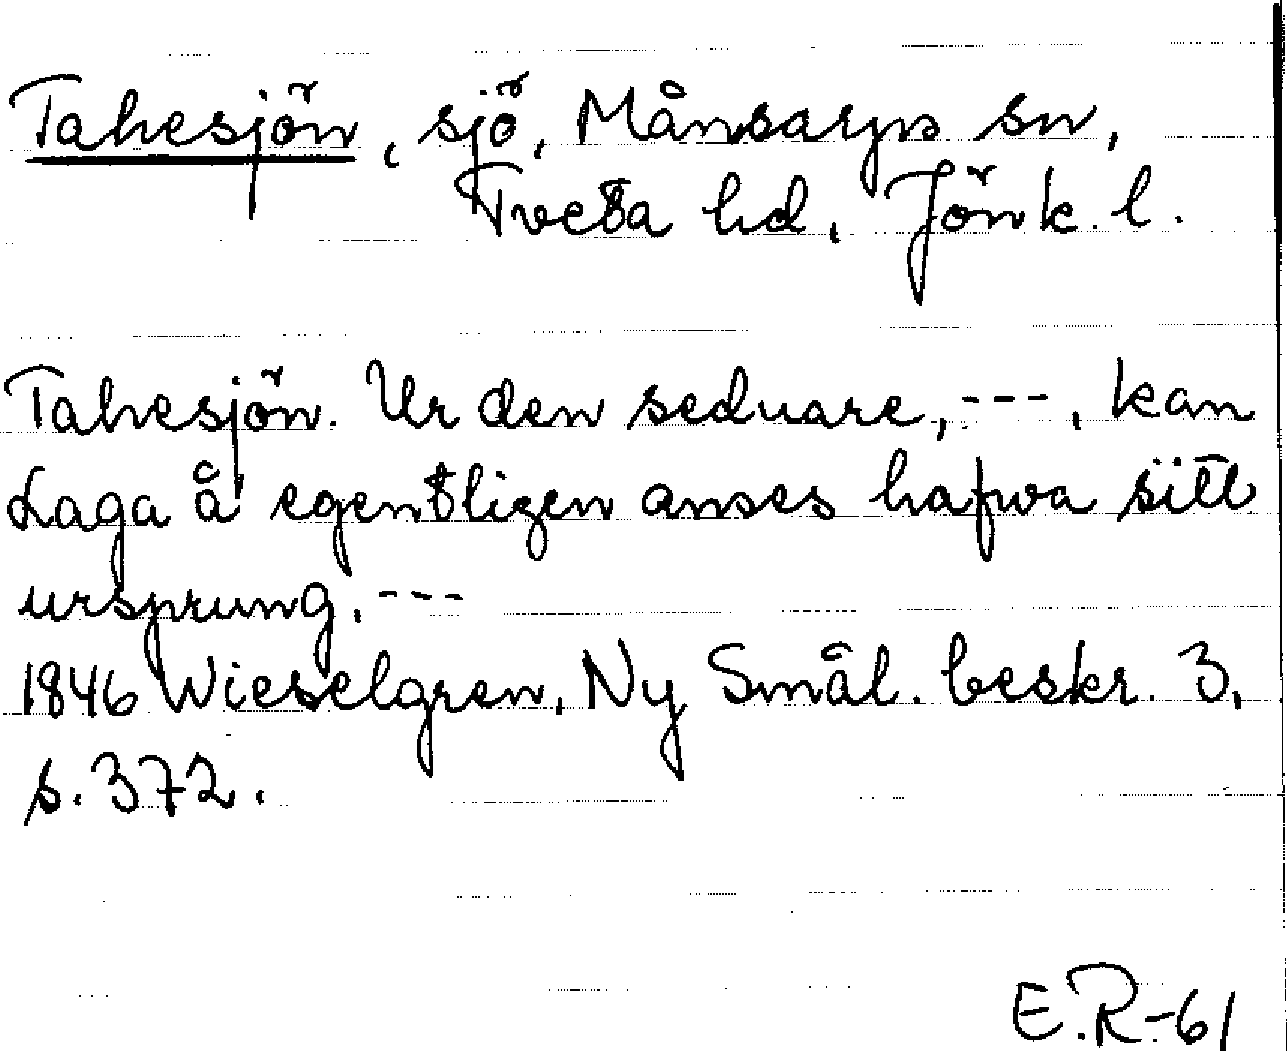 Tahesjön, sjö, Månsarps sn,
Tveta hd, Jönk. l.
Tahesjön. Ur den sednare, ---, kan
Laga å egentligen anses hafva sitt
ursprung. ---
1846 Wieselgren, Ny Smål. beskr. 3,
s. 372.
E.R-61